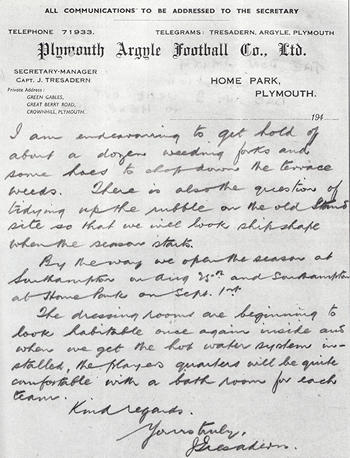 ALL COMMUNICATIONS TO BE ADDRESSED TO THE SECRETARY
TELEPHONE 71933. TELEGRAMS: TRESADERN, ARGYLE, PLYMOUTH
Plymouth Argyle Football Co., Ltd.
SECRETARY-MANAGER
CAPT. J. TRESADERN
Private Address:
GREEN GABLES,
GREAT BERRY ROAD,
CROWNHILL, PLYMOUTH.
HOME PARK,
PLYMOUTH.
194
I am endeavouring to get hold of
about a dozen weeding forks and
some hoes to chop down the terrace
weeds. There is also the question of
tidying up the rubble on the old Stand
site so that we will look ship shape
when the season starts.
By the way we open the season at
Southampton on Aug 25th and Southampton
at Home Park on Sept. 1st.
The dressing rooms are beginning to
look habitable once again inside and
when we get the hot water system in-
stalled, the players quarters will be quite
comfortable with a bath room for each
team.
Kind regards.
Yours truly,
J Tresadern.